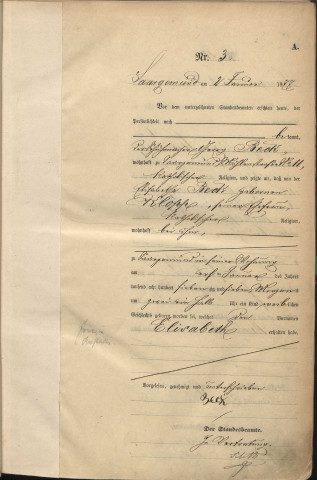 A.
Nr. 3
Saargemünd am 2 Januar 1877
Vor dem unterzeichneten Standesbeamten erschien heute, der
Persönlichkeit nach
bekannt,
Georg Beck
wohnhaft zu Saargemünd
katholischer Religion, und zeigte an, daß von der
Elisabetha Beck geborenen
Klopp, seiner Ehefrau
katholischer Religion,
wohnhaft bei ihm,
zu Saargemünd in seiner Wohnung
am ersten Januar des Jahres
tausend acht hundert siebenzig und sieben Morgens
um zwei ein halb Uhr ein Kind weiblichen
Geschlechts geboren worden sei, welches den Vornamen
Elisabeth
erhalten habe.
Vorgelesen, genehmigt und unterschrieben
Beck
Der Standesbeamte.
In Vertretung